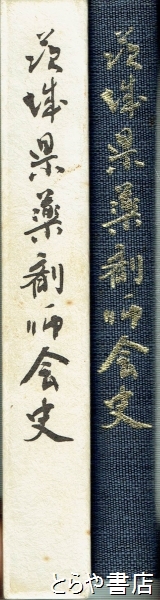 茨城県薬剤師会史
茨城県薬剤師会史
とらや書店